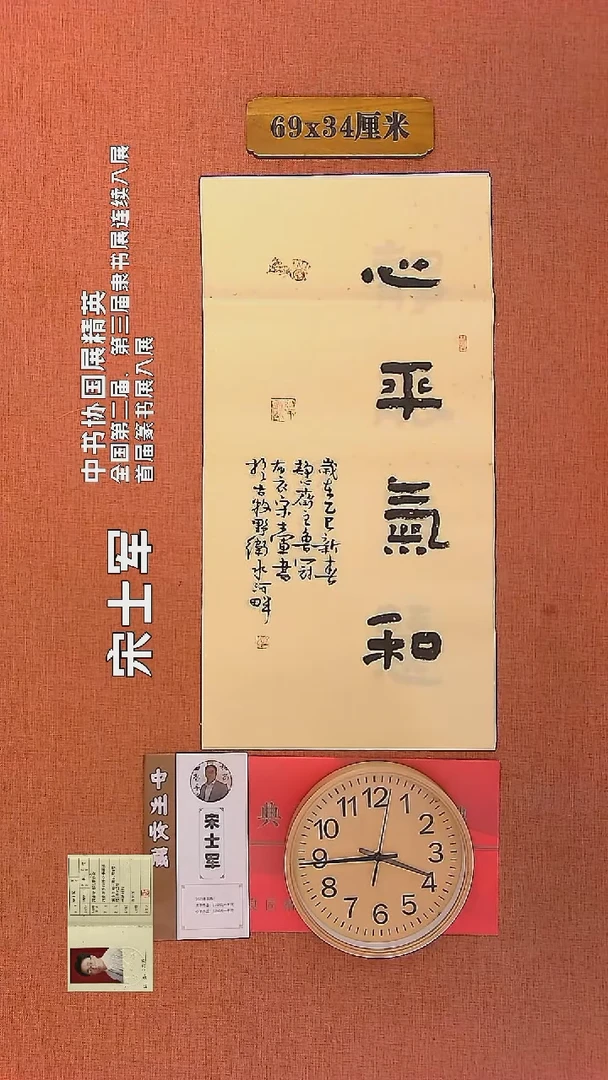 69x34厘米
中书协国展精英
全国第二届、第三届隶书展连续入展
首届篆书展入展
宋士军
心平氣和
歲在乙巳新春
静心齋主魯冠
右衣宋士軍書
於古牧野衛水河畔
宋士军
典
12
1
2
3
4
5
6
7
8
9
10
11